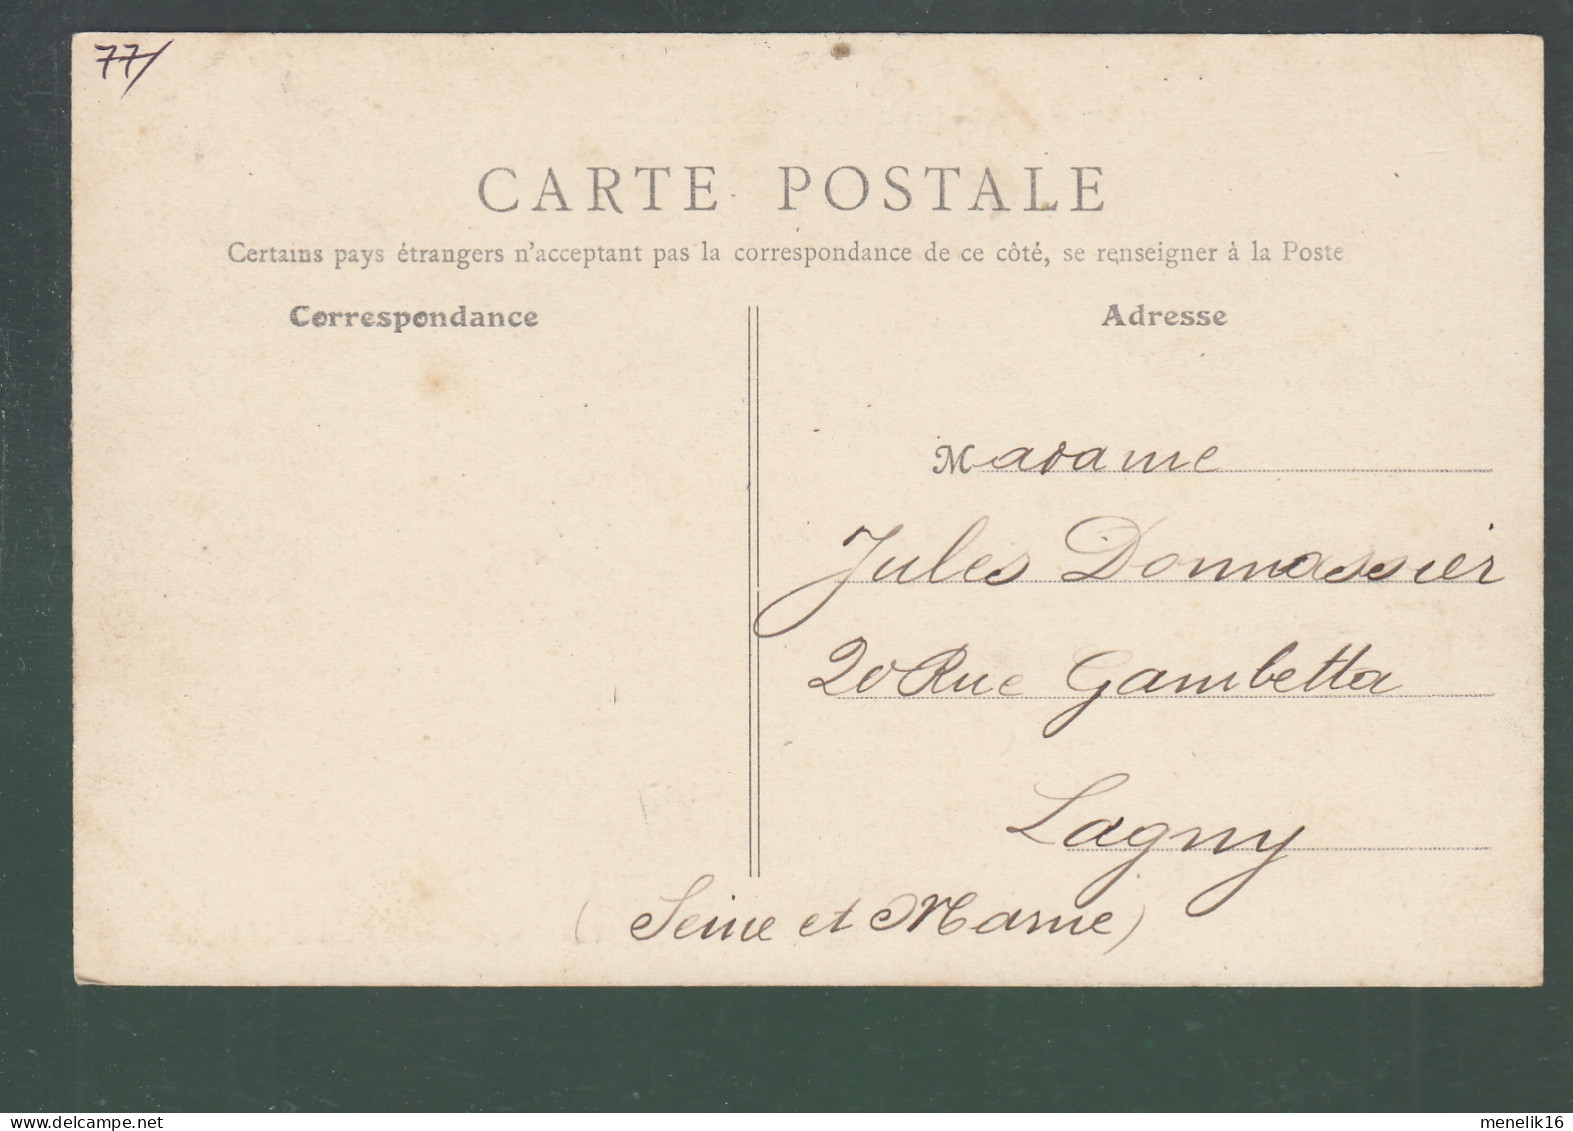 77/
CARTE POSTALE
Certains pays étrangers n'acceptant pas la correspondance de ce côté, se renseigner à la Poste
Correspondance
Adresse
Madame
Jules Donnassier
20 Rue Gambetta
Lagny
(Seine et Marne)
delcampe.net
menelik16